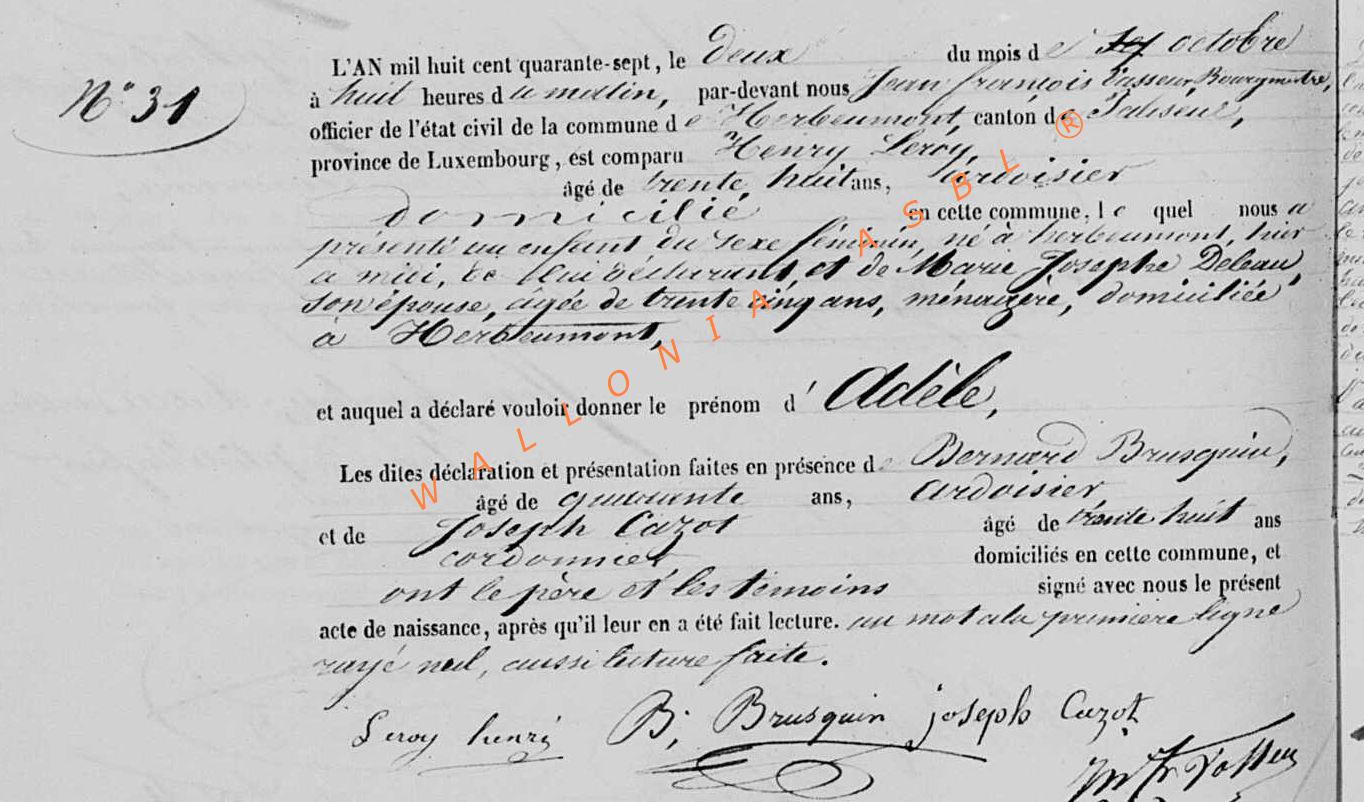 N° 31
L'AN mil huit cent quarante-sept, le deux du mois d'octobre
à huit heures du matin, par-devant nous Jean françois Bourgmestre,
officier de l'état civil de la commune de Herbeumont, canton de Paliseul,
province de Luxembourg, est comparu Henry Leroy,
âgé de trente huit ans, ardoisier
domicilié en cette commune, lequel nous a
présenté un enfant du sexe féminin, né à herbeumont, hier
a midi, de lui déclarant, et de Marie Josephe Deleau,
son épouse, agée de trente cinq ans, ménagère, domiciliée
à Herbeumont,
et auquel a déclaré vouloir donner le prénom d'Adèle,
Les dites déclaration et présentation faites en présence de Bernard Brusquin,
âgé de quarante ans, ardoisier,
et de Joseph Cazot âgé de trente huit ans
cordonnier domiciliés en cette commune, et
ont le père et les témoins signé avec nous le présent
acte de naissance, après qu'il leur en a été fait lecture. un mot a la première ligne
rayé nul, aussi lecture faite.
Leroy henri B; Brusquin joseph Cazot
WALLONIA ASBL ®